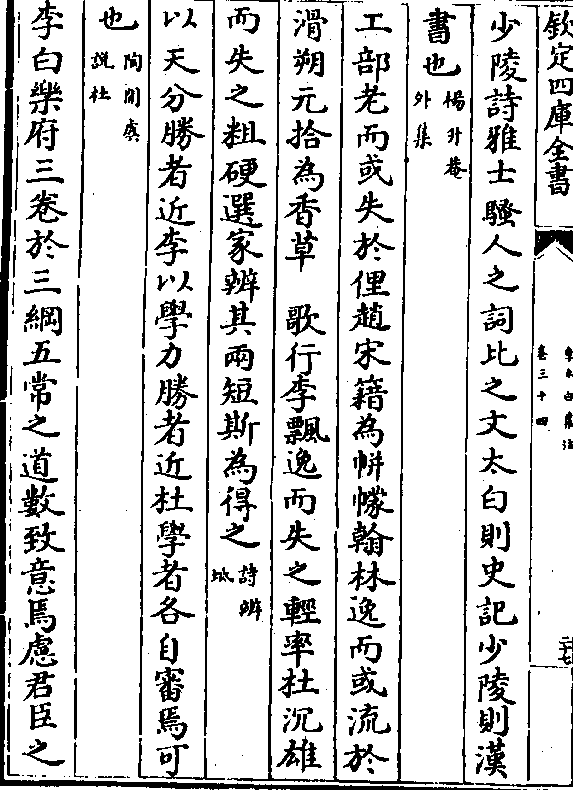 欽定四庫全書
卷三十四
少陵詩雅士騷人之詞比之文太白則史記少陵則漢
書也楊升菴外集
工部老而或失於俚趙宋籍為帡幪翰林逸而或流於
滑朔元拾為香草 歌行李飄逸而失之輕率杜沉雄
而失之粗硬選家辨其兩短斯為得之詩辨坻
以天分勝者近李以學力勝者近杜學者各自審焉可
也閒閒處説杜
李白樂府三卷於三綱五常之道數致意焉慮君臣之